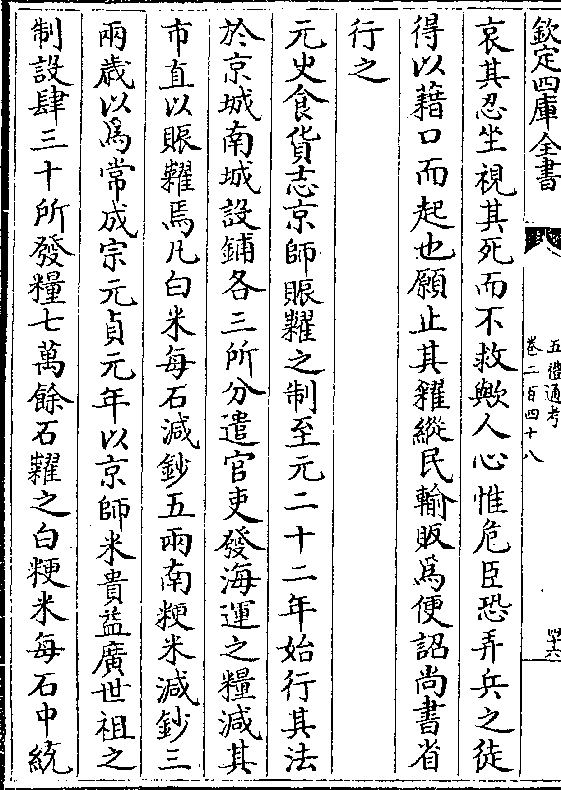 欽定四庫全書
五禮通考
卷二百四十八
四十六
哀其忍坐視其死而不救歟人心惟危臣恐弄兵之徒
得以藉口而起也願止其糴縱民輸販為便詔尚書省
行之
元史食貨志京師賑糶之制至元二十二年始行其法
於京城南城設鋪各三所分遣官吏發海運之糧減其
市直以賑糶焉凡白米每石減鈔五兩南粳米減鈔三
兩歲以為常成宗元貞元年以京師米貴益廣世祖之
制設肆三十所發糧七萬餘石糶之白粳米每石中統